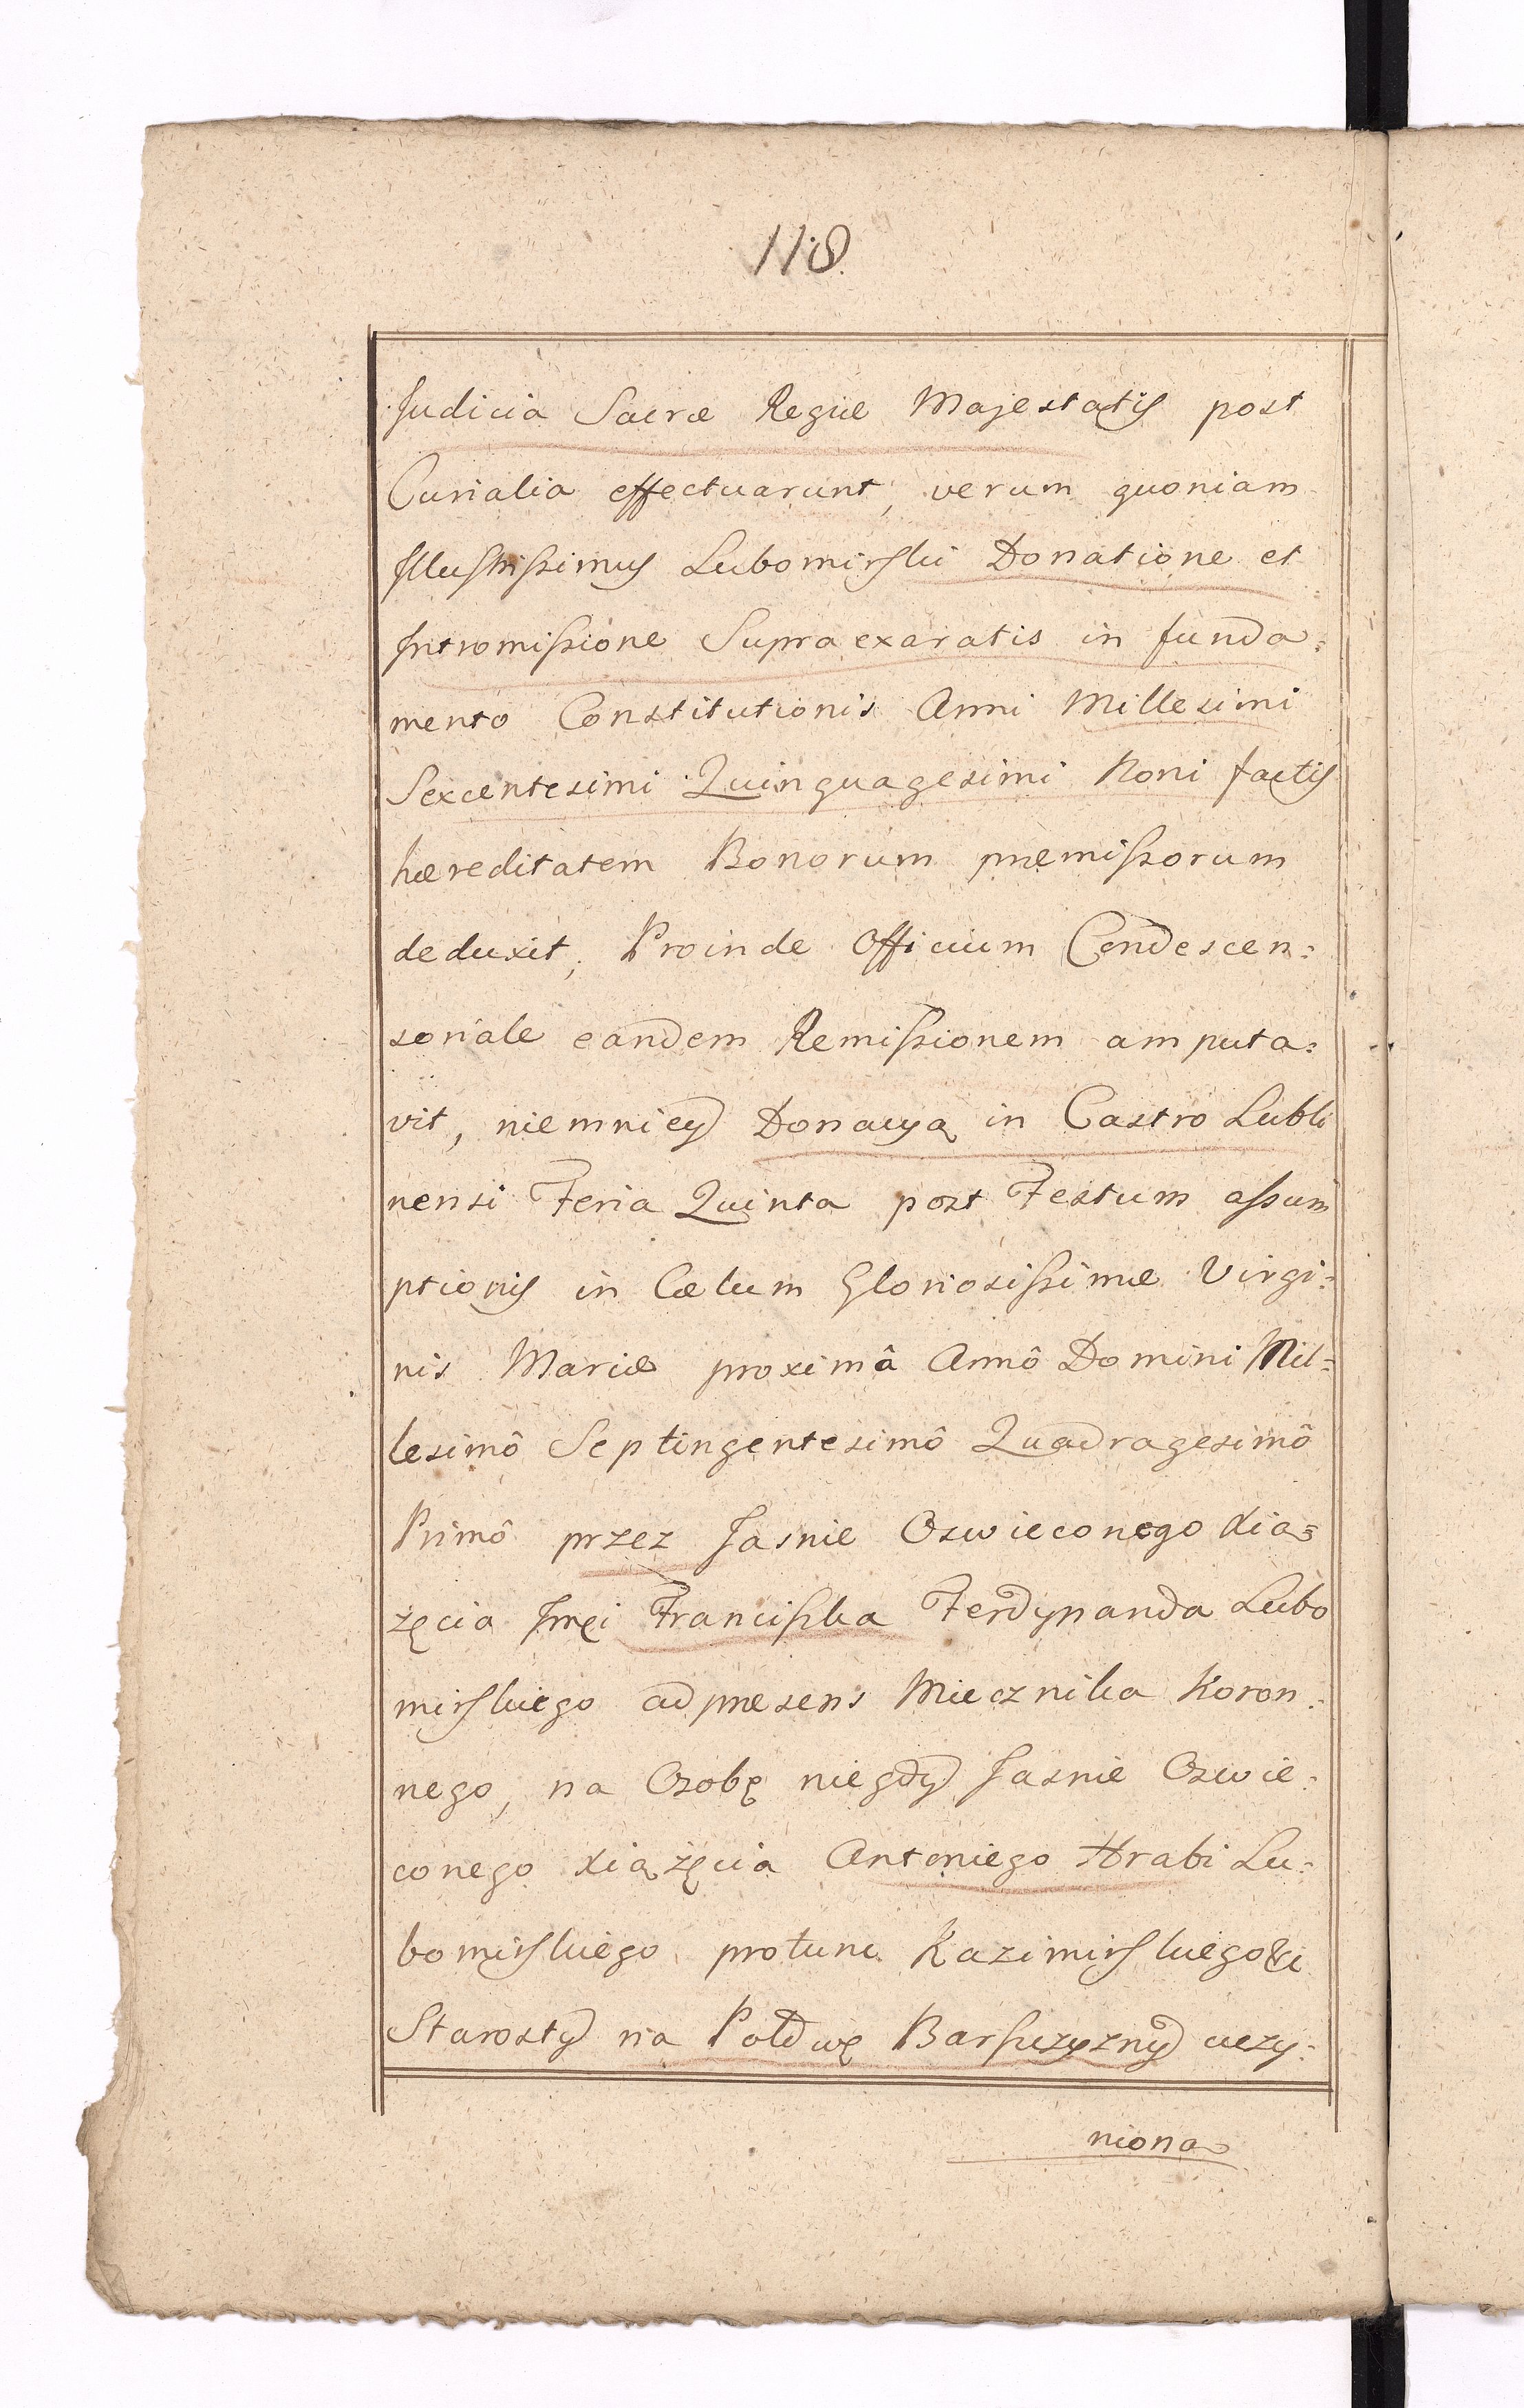 118.
Judicia Sacræ Regiæ Majestatis post
Curialia effectuarunt, verum quoniam
Illustrissimus Lubomirski Donatione et
Intromissione Supra exaratis in funda:
mento Constitutionis Anni Millesimi
Sexcentesimi Quinquagesimi Noni factis
hæreditatem Bonorum præmissorum
deduxit, Proinde Officium Condescen:
soriale eandem Remissionem amputa:
vit, niemniey Donacya in Castro Lubli
nensi Feria Quinta post Festum assum
ptionis in Cælum Gloriosissimæ Virgi:
nis Mariæ proximâ Annô Domini Mil:
lesimô Septingentesimô Quadragesimô
Primô przez Jasnie Oswieconego Xia:
zęcia Jmci Franciszka Ferdynanda Lubo
mirskiego ad præsens Miecznika Koron:
nego, na Osobę niegdy Jasnie Oswie:
conego Xiążęcia Antoniego Hrabi Lu:
bomirskiego protunc Kazimirskiego
Starosty na Połowę Barszczyzny uczy:
niona